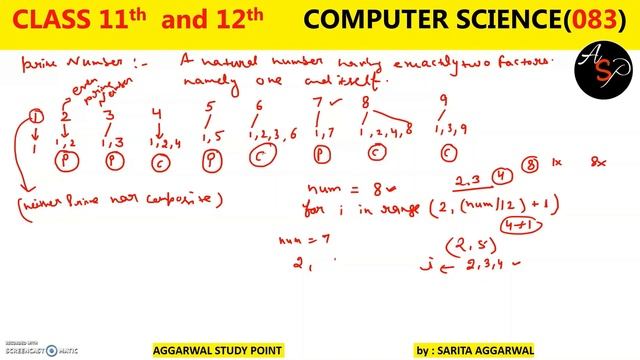 CLASS 11th and 12th COMPUTER SCIENCE(083)
Prime Number :- A natural number having exactly two factors.
namely one and itself.
ASP
even prime number
1 2 3 4 5 6 7 8 9
1 1,2 1,3 1,2,4 1,5 1,2,3,6 1,7 1,2,4,8 1,3,9
P P C P C P C C
(neither Prime nor composite)
2,3 4 8 1x 8x
num = 8
for i in range (2, (num//2) + 1)
4+1
num = 7 (2,5)
2, i ← 2,3,4
RECORDED WITH
SCREENCAST MATIC
AGGARWAL STUDY POINT by : SARITA AGGARWAL